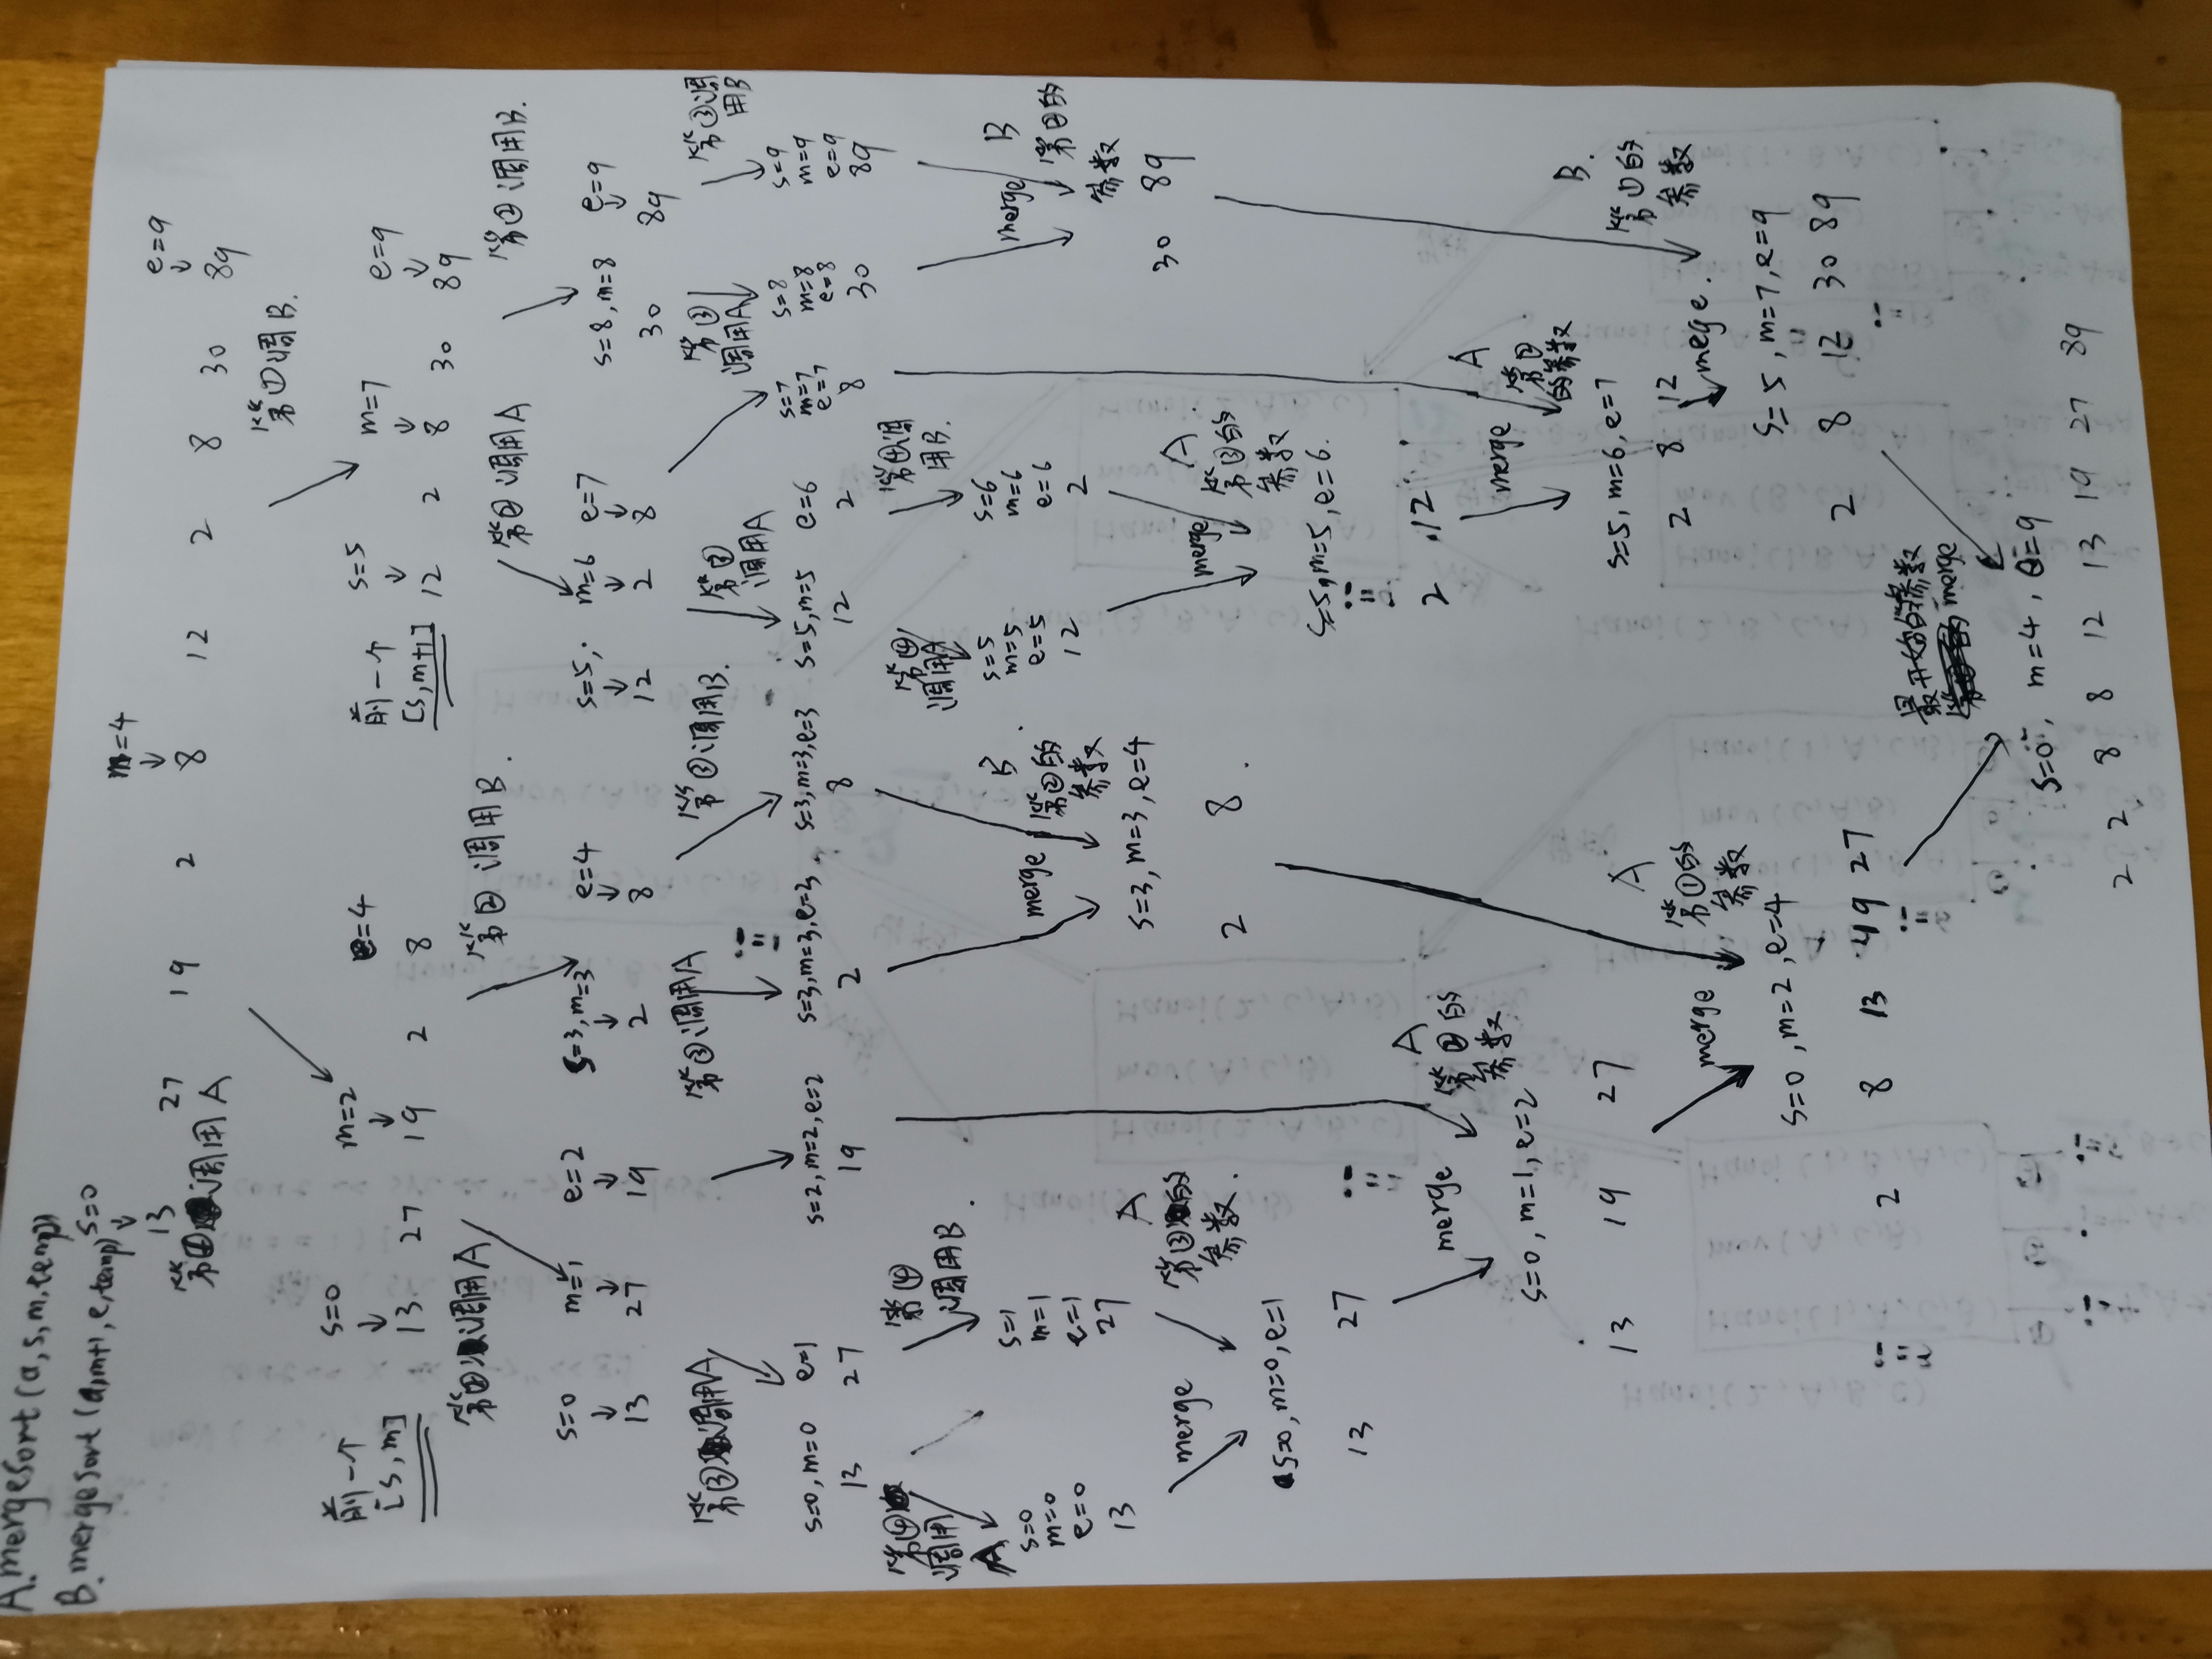 A. mergeSort(a, s, m, temp)
B. mergeSort(a, m+1, e, temp)
s=0 m=4 e=9
13 27 19 2 8 12 2 8 30 89
第①调用A 第①调B.
s=0 m=2 e=4 s=5 m=7 e=9
前一个 13 27 19 2 8 前一个 12 2 8 30 89
[s,m] [s,m+1]
第②调用A 第②调用B. 第②调用A 第②调用B.
s=0 m=1 e=2 s=3,m=3 e=4 s=5, m=6 e=7 s=8,m=8 e=9
13 27 19 2 8 12 2 8 30 89
第③调用A 第③调用A 第③调用B. 第③调用A 第③调用A 第③调用B
s=0,m=0 e=1 s=2,m=2,e=2 s=3,m=3,e=3 s=3,m=3,e=3 s=5,m=5 e=6 s=7 m=7 e=7 s=8 m=8 e=8 s=9 m=9 e=9
13 27 19 2 8 12 2 8 30 89
第④调用A 第④调用B. 第④调用A 第④调用B.
s=0 s=1 s=5 s=6
m=0 m=1 m=5 m=6
e=0 e=1 e=5 e=6
13 27 12 2
merge B 第②的参数 merge B 第②的参数
s=3,m=3,e=4
2 8 30 89
merge A 第③的参数. merge A 第③的参数
s=0,m=0,e=1 s=5,m=5,e=6.
13 27 2 12
merge A 第②的参数 merge A 第②的参数
s=0,m=1,e=2 s=5,m=6,e=7
13 19 27 2 8 12
merge A 第①的参数 merge. B. 第①的参数
s=0,m=2,e=4 s=5,m=7,e=9
2 8 13 19 27 2 8 12 30 89
最开始的参数 merge
s=0, m=4, e=9
2 2 8 8 12 13 19 27 89